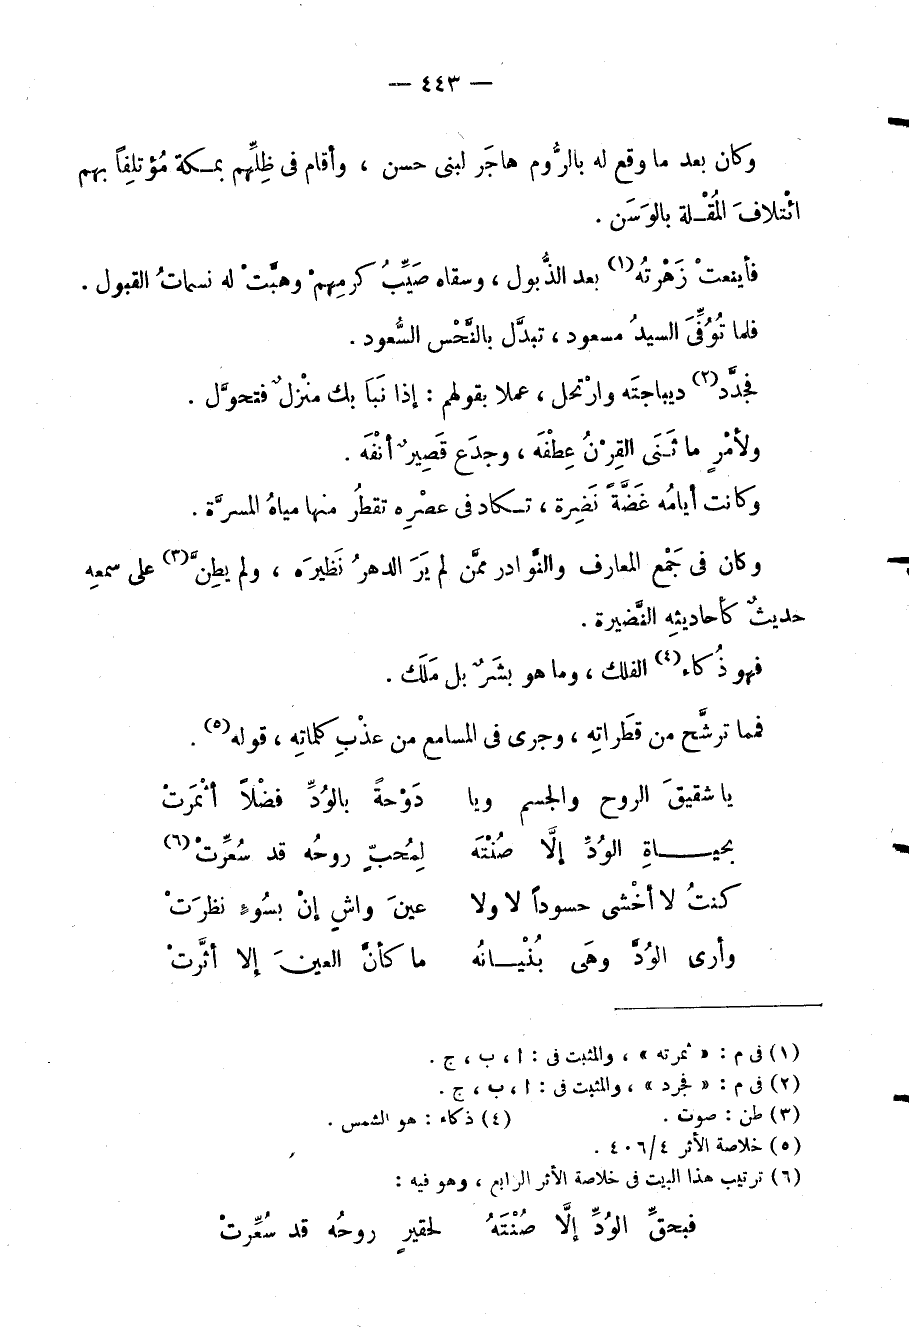 — ٤٤٣ —
وكان بعد ما وقع له بالرُّوم هاجَر لبنى حسن ، وأقام فى ظِلِّهم بمكة مُؤتلِفاً بهم
ائْتلافَ المُقْلة بالوَسَن .
فأينعتْ زَهْرتُه(١) بعد الذُّبول ، وسقاه صَيِّبُ كرمِهمْ وهبَّتْ له نسماتُ القبول .
فلما تُوُفِّىَ السيدُ مسعود ، تبدَّل بالنَّحْس السُّعود .
فجَدَّد(٢) ديباجتَه وارْتحل ، عملا بقولهم : إذا نَبَا بك منْزلٌ فتحوَّل .
ولأمْرٍ ما ثَنَى القِرْنُ عِطْفَه ، وجدَع قَصِيرٌ أنْفَه .
وكانت أيامُه غَضَّةً نَضِرة ، تكاد فى عصْرِه تقطُر منها مياهُ المسرَّة .
وكان فى جَمْع المعارف والنَّوادر ممَّن لم يَرَ الدهرُ نَظيرَه ، ولم يطِنَّ(٣) على سمعِه
حديثٌ كأحاديثِه النَّضيرة .
فهو ذُكاء(٤) الفلك ، وما هو بشَرٌ بل مَلَك .
فمما ترشَّح من قطَراتِه ، وجرى فى المسامع من عذْبِ كلماتِه ، قوله(٥) .
يا شقيقَ الروح والجسم ويا دَوْحةً بالوُدِّ فضْلاً أثْمَرتْ
بحيـاةِ الوُدِّ إلَّا صُنْتَه لِمُحبٍّ روحُه قد سُعِّرتْ(٦)
كنتُ لا أخْشى حسوداً لا ولا عينَ واشٍ إنْ بسُوءٍ نظرَتْ
وأرى الوُدَّ وهَى بُنْيـانُه ما كأنَّ العينَ إلا أثَّرتْ
(١) فى م : « ثمرته » ، والمثبت فى : ا ، ب ، ج .
(٢) فى م : « فجرد » ، والمثبت فى : ا ، ب ، ج .
(٣) طن : صوت . (٤) ذكاء : هو الشمس .
(٥) خلاصة الأثر ٤/٤٠٦ .
(٦) ترتيب هذا البيت فى خلاصة الأثر الرابع ، وهو فيه :
فبحقِّ الوُدِّ إلَّا صُنْتَهُ لحقيرٍ روحُه قد سُعِّرتْ